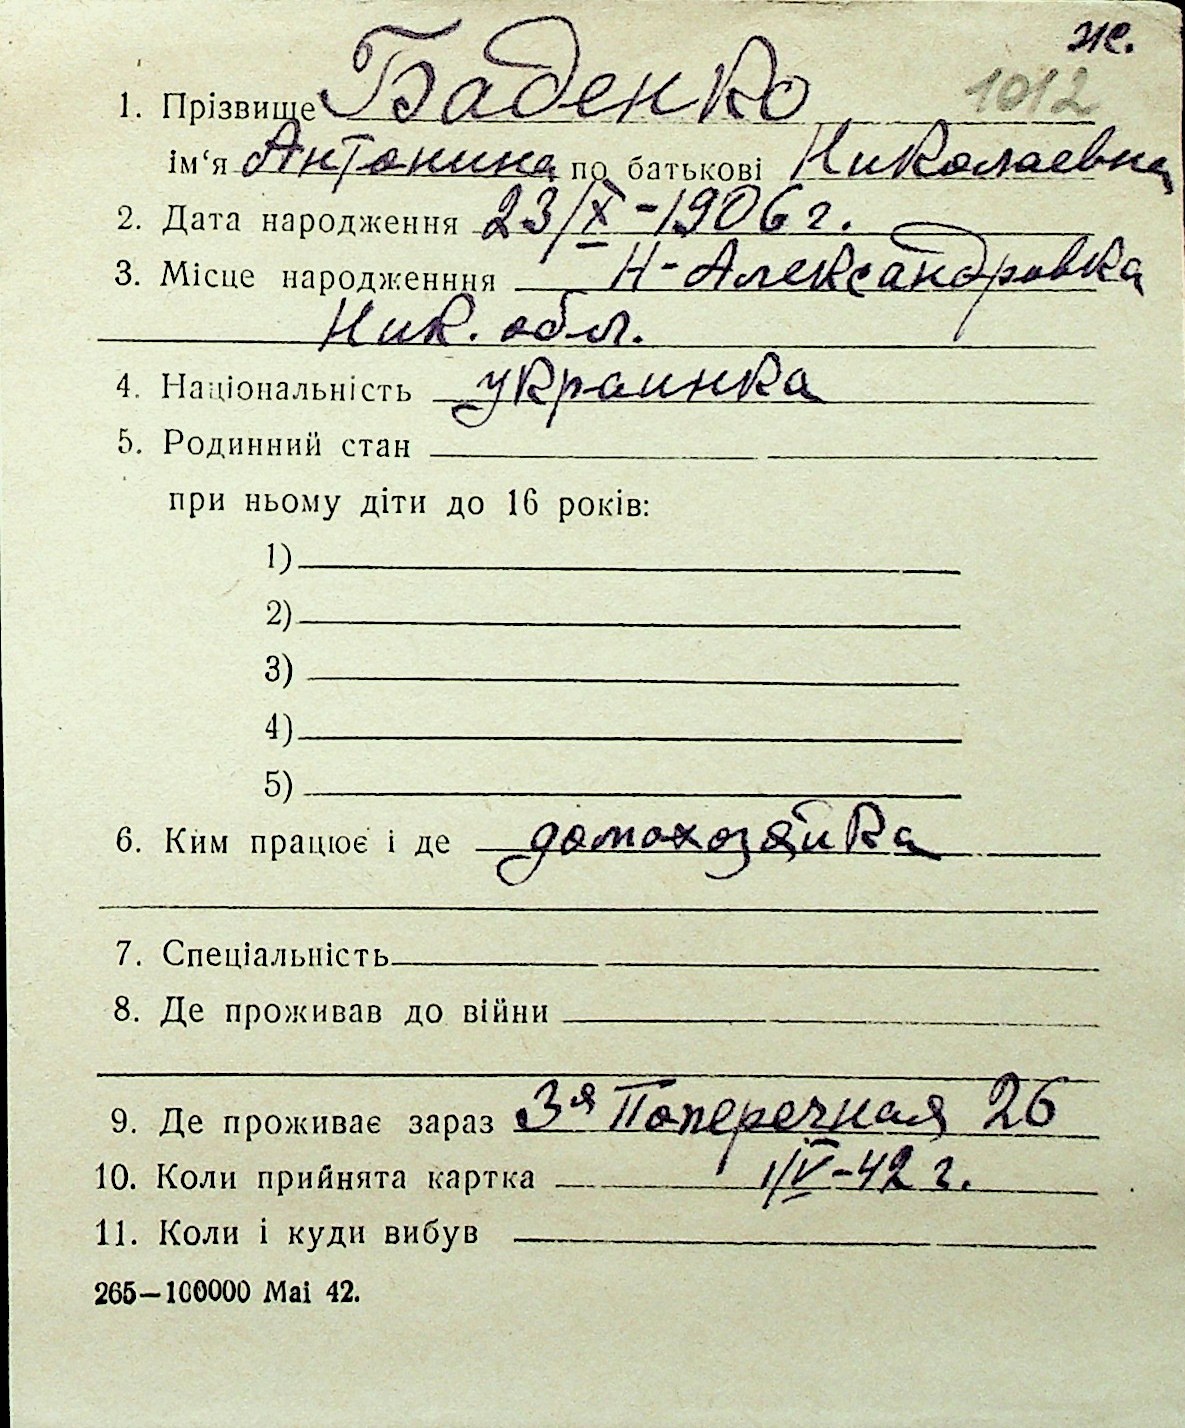 ж.
1012
1. Прізвище Баденко
ім‘я Антонина по батькові Николаевна
2. Дата народження 23/X-1906 г.
3. Місце народженння Н-Александровка
Ник. обл.
4. Національність украинка
5. Родинний стан
при ньому діти до 16 років:
1)
2)
3)
4)
5)
6. Ким працює і де домохозяйка
7. Спеціальність
8. Де проживав до війни
9. Де проживає зараз 3я Поперечная 26
10. Коли прийнята картка 1/V-42 г.
11. Коли і куди вибув
265—100000 Mai 42.